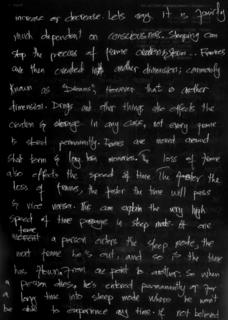 increase or decrease. Lets say it is
much dependent on consciousness. Sleeping can
stop the process of frame creation &
are then created into another dimension; commonly
known as 'Dreams'. However that is another
dimension. Drugs and other things also effects the
creation & storage. In any case not every frame
is stored permanently. Frames are moved around
short term & long term memories. The loss of frame
also effects the speed of time. The faster the
loss of frames, the faster the time will pass
& vice versa. This can explain the very high
speed of time passage in sleep mode. At one
frame
moment a person enters the sleep mode, the
next frame he's out, and so is the time
has flown from one point to another. So when
a person dies, he's entered permanently or for
a long time into sleep mode where he won't
be able to experience any time. If not believed